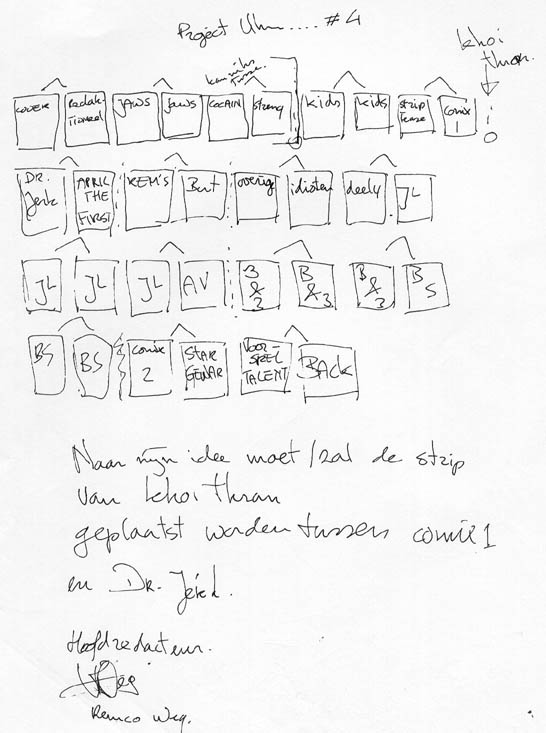 Project Uhm.... #4
khoi
thran.
COVER Redak- JAWS JAWS COCAIN streng kids kids strip comix
tioneel tease 1
DR. APRIL REM's Bert overige idioten deely JL
Jerk THE
FIRST
JL JL JL AV B B B B
& & & S
3 3 3
BS BS comix STAR VOOR- BACK
2 GEWAR SPEL
TALENT
Naar mijn idee moet/zal de strip
van khoi thran
geplaatst worden tussen comix 1
en DR. Jerk.
Hoofdredacteur.
Remco Weg.